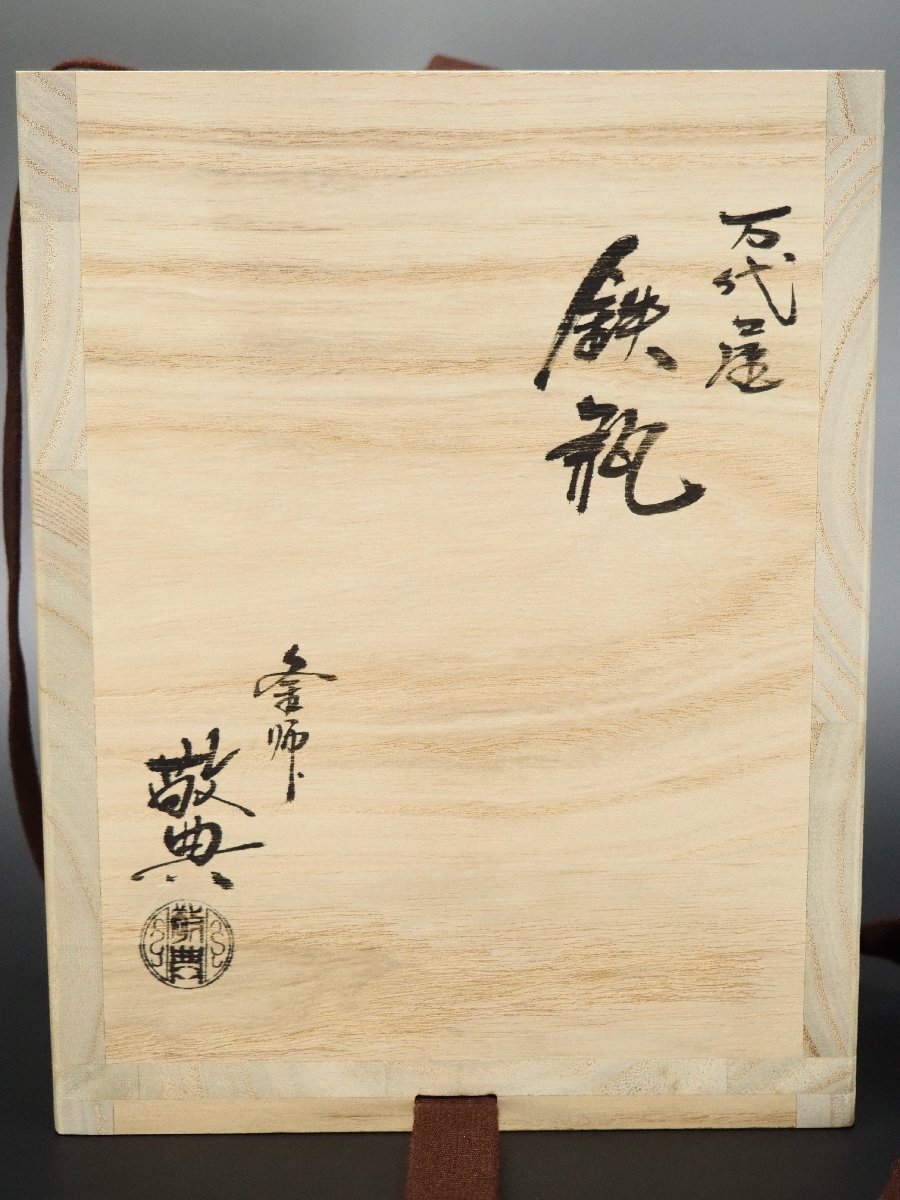 万代屋
鉄瓶
釜師
敬典
敬典